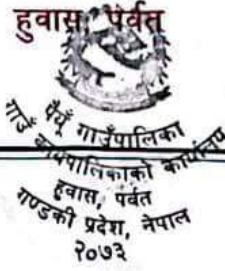 हुवास, पर्वत
पैयूँ गाउँपालिका
गाउँ कार्यपालिकाको कार्यालय
हुवास, पर्वत
गण्डकी प्रदेश, नेपाल
२०७३